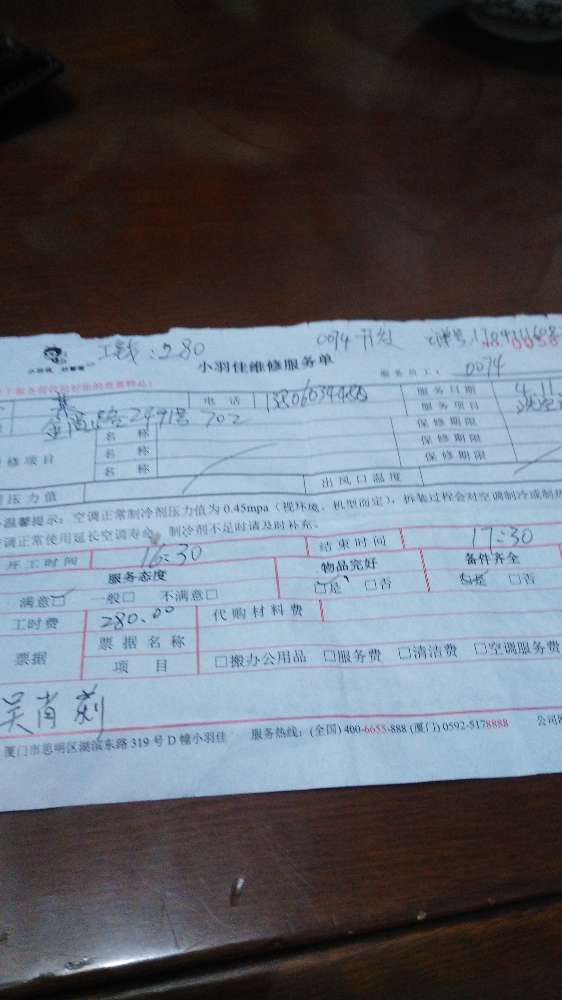 工钱：280
0074
小羽佳维修服务单
服务员工： 0074
电话
服务日期 4.11
路2491号702
服务项目
名称 保修期限
修项目 名称 保修期限
名称 保修期限
压力值 出风口温度
温馨提示：空调正常制冷剂压力值为 0.45mpa（视环境、机型而定），拆装过程会对空调制冷或制热
调正常使用延长空调寿命，制冷剂不足时请及时补充。
开工时间 16:30 结束时间 17:30
服务态度 物品完好 备件齐全
满意□ 一般□ 不满意□ □是 □否 □是 □否
工时费 280.00 代购材料费
票据 票据名称
项目 □搬办公用品 □服务费 □清洁费 □空调服务费
吴肖
厦门市思明区湖滨东路 319 号 D 幢小羽佳 服务热线：(全国) 400-6655-888 (厦门) 0592-5178888